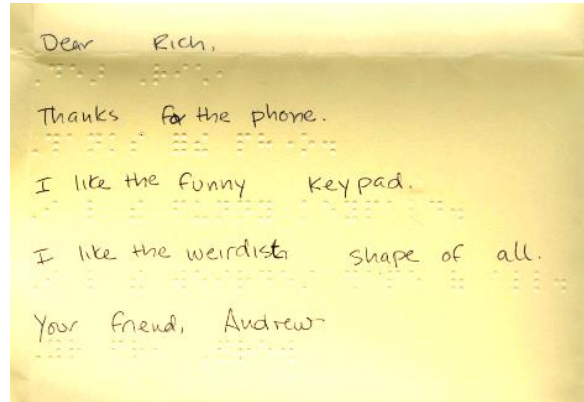 Dear Rich,
Thanks for the phone.
I like the funny keypad.
I like the weirdist shape of all.
Your friend, Andrew